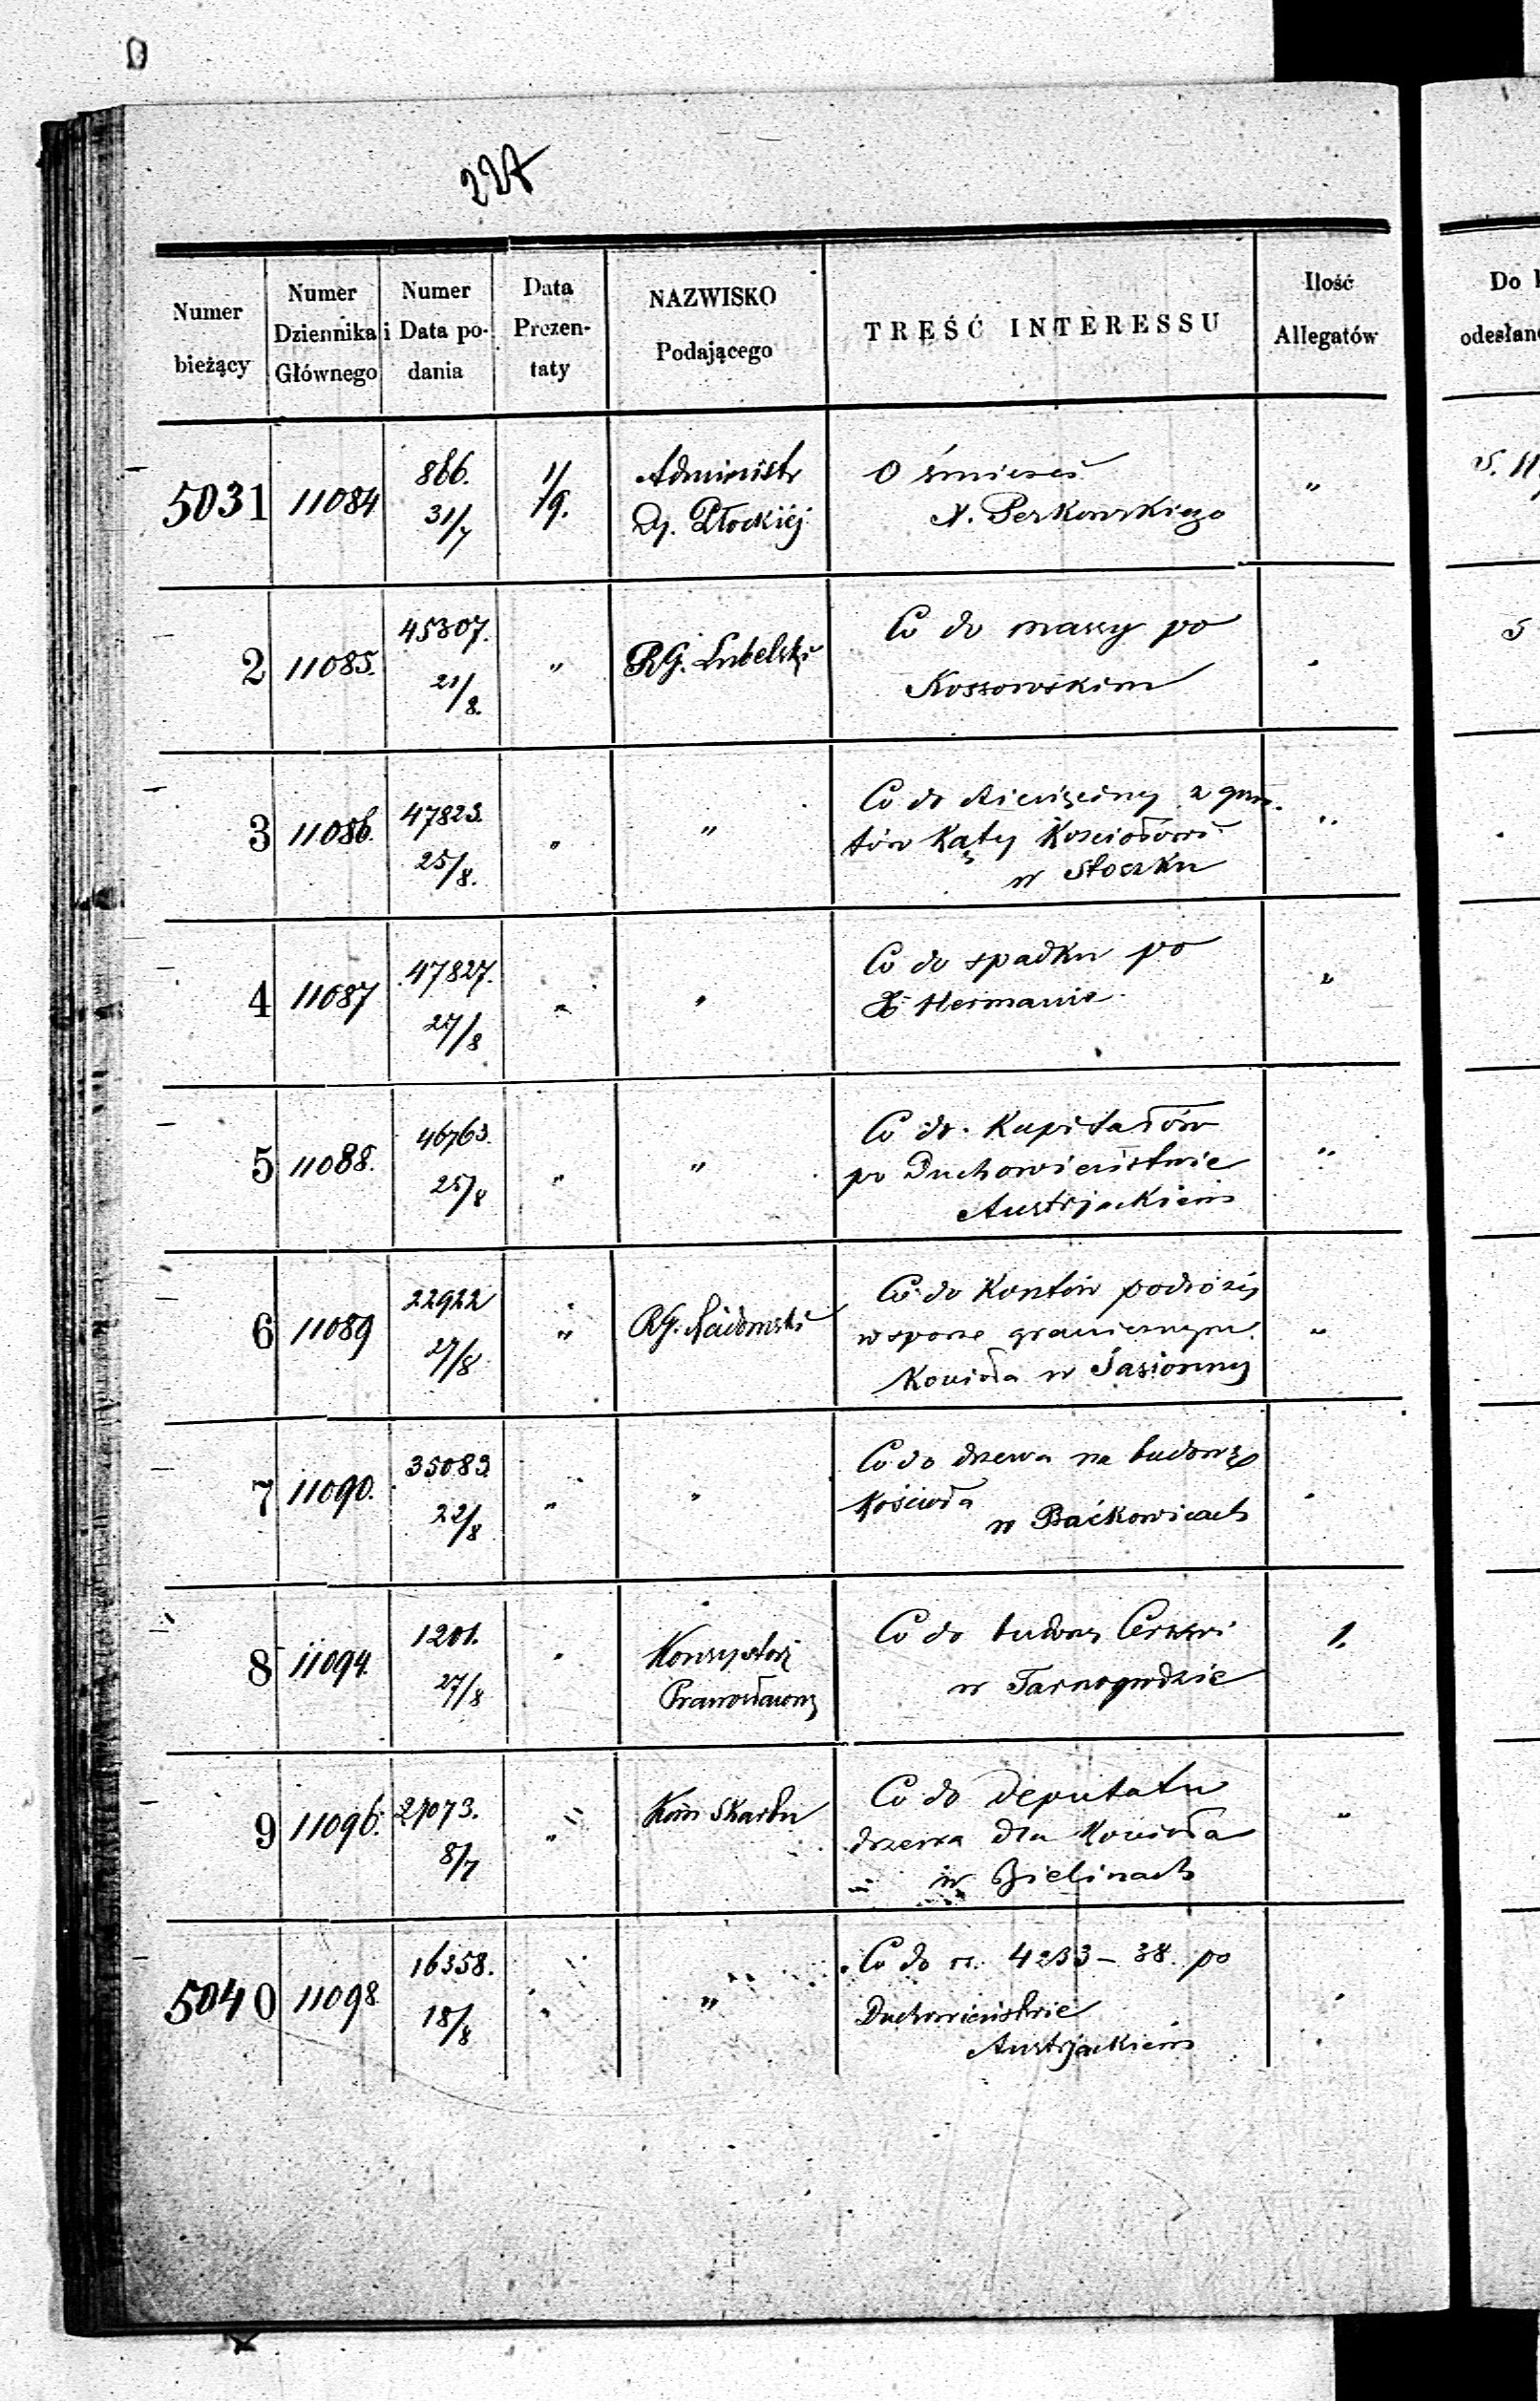 227
Numer bieżący
Numer Dziennika Głównego
Numer i Data podania
Data Prezentaty
NAZWISKO Podającego
TREŚĆ INTERESSU
Ilość Allegatów
Do
odesłan
5031 11084 866. 31/7 1/9. Administr O śmierci "
Dy. Płockiéj X. Perkowskiego
2 11085. 45307. 21/8. " RG. Lubelski Co do massy po
Kossowskim
3 11086. 47823. 25/8. " " Co do dziesięciny z grun-
tów Kąty Kościołowi
w Stoczku
4 11087 47827. 27/8 " " Co do spadku po "
X Hermanie
5 11088. 46763. 25/8 " " Co do Kapitałów "
po Duchowieństwie
Austrjackiém
6 11089 22922 27/8 " RG. Radomski Co do Kosztów podróży "
w sporze granicznym
Kościoła w Jasionny
7 11090. 35083 22/8 " " Co do drzewa na budowę
Kościoła
w Baćkowicach
8 11094. 1201. 27/8 " Konsystorz Co do budowy Cerkwi 1.
Prawosławny w Tarnogrodzie
9 11096. 27073. 8/7 " Kom Skarbu Co do deputatu "
drzewa dla Kościoła
w Bielinach
5040 11098. 16358. 18/8 " " Co do rs. 4233-38. po
Duchowieństwie
Austrjackiém